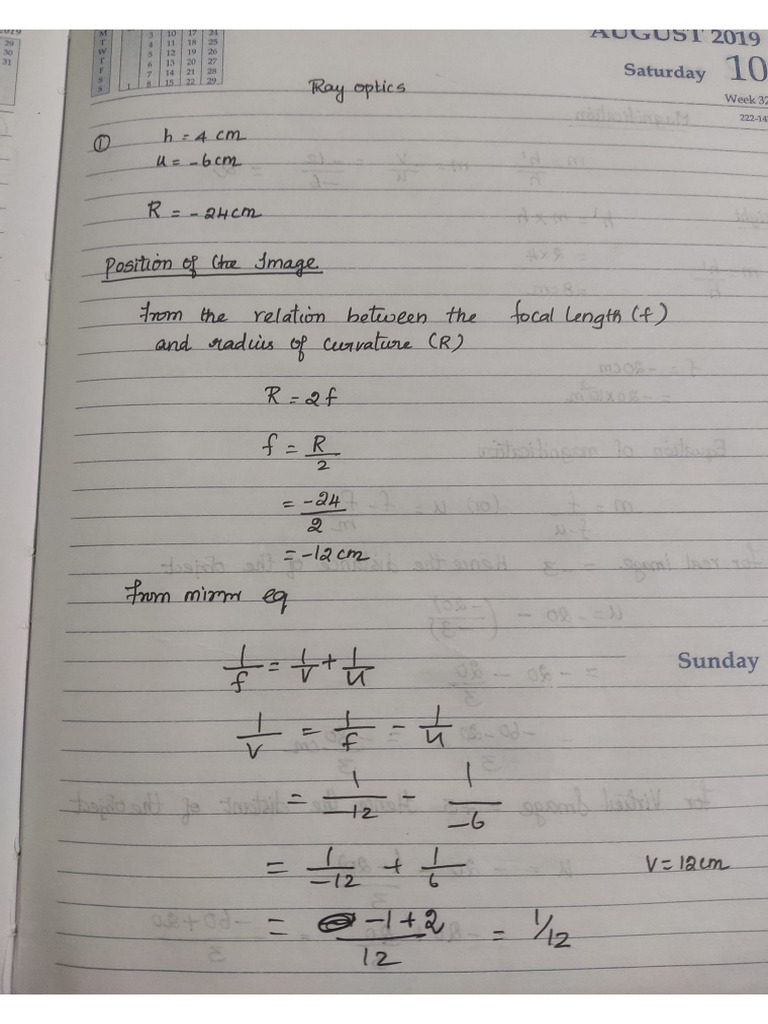 AUGUST 2019
Saturday 10
Week 32
222-14
29
30
31
M 3 10 17 24
T 4 11 18 25
W 5 12 19 26
T 6 13 20 27
F 7 14 21 28
S 1 8 15 22 29
Ray optics
① h = 4 cm
u = -6cm
R = -24cm
Position of the Image
From the relation between the focal length (f)
and radius of curvature (R)
R = 2f
f = R/2
= -24/2
= -12cm
From mirror eq
1/f = 1/v + 1/u
Sunday
1/v = 1/f - 1/u
= 1/-12 - 1/-6
= 1/-12 + 1/6 V = 12cm
= -1+2/12 = 1/12